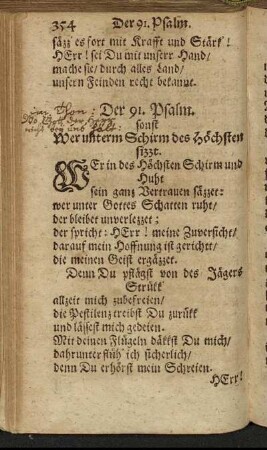 354 Der 91. Psalm.
säzz es fort mit Krafft und Stärk!
HErr! sei Du mit unsrer Hand/
mache sie/ durch alles Land/
unsern Feinden recht bekannt.
im Thon:
Der 91. Psalm.
sonst
Wer unterm Schirm des Höchsten
sizzt.
WEr in des Höchsten Schirm und
Huht
sein ganz Vertrauen säzzet:
wer unter Gottes Schatten ruht/
der bleibet unverlezzet;
der spricht: HErr! meine Zuversicht/
darauf mein Hoffnung ist gericht/
die meinen Geist ergäzzet.
Denn Du pflägst von des Jägers
Strükk
allzeit mich zubefreien/
die Pestilenz treibst Du zurükk
und lässest mich gedeien.
Mit deinen Flügeln däkkst Du mich/
dahrunter flüh' ich sicherlich/
denn Du erhörst mein Schreien.
HErr!